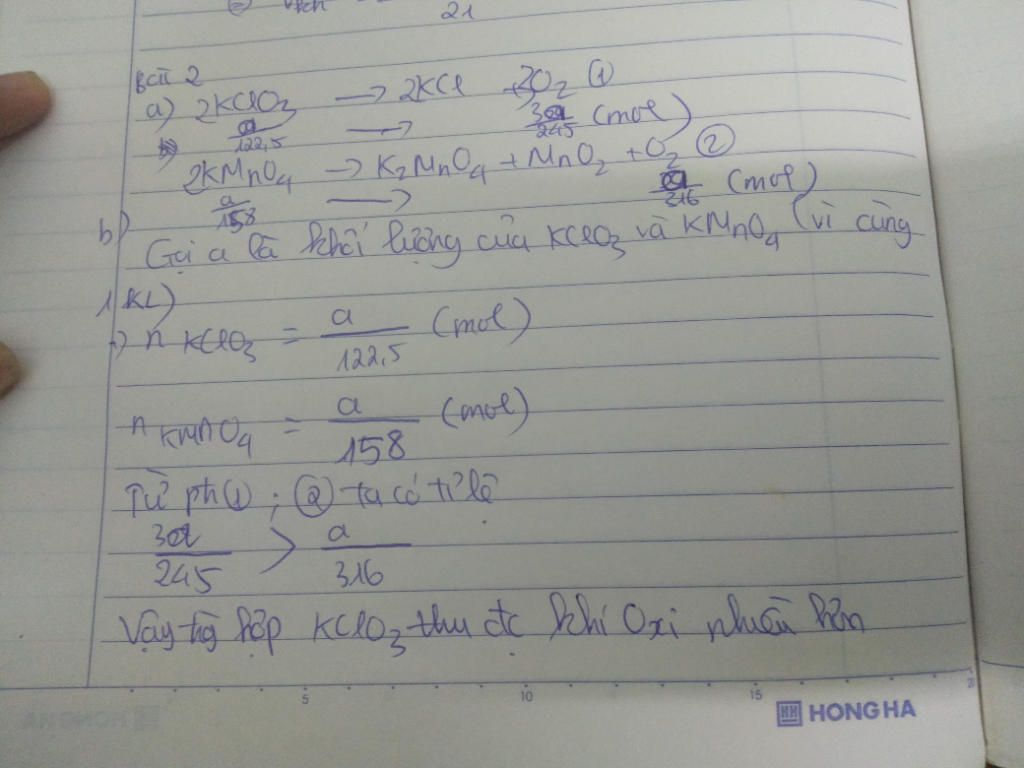 21
Bài 2
a) 2KClO3 → 2KCl + 3O2 ①
a/122,5 → 3a/245 (mol)
2KMnO4 → K2MnO4 + MnO2 + O2 ②
a/158 → a/316 (mol)
b)
Gọi a là khối lượng của KClO3 và KMnO4 (vì cùng
1 KL)
n KClO3 = a/122,5 (mol)
n KMnO4 = a/158 (mol)
Từ pt ① ; ② ta có tỉ lệ
3a/245 > a/316
Vậy hợp KClO3 thu đc khí Oxi nhiều hơn
5 10 15
HONG HA